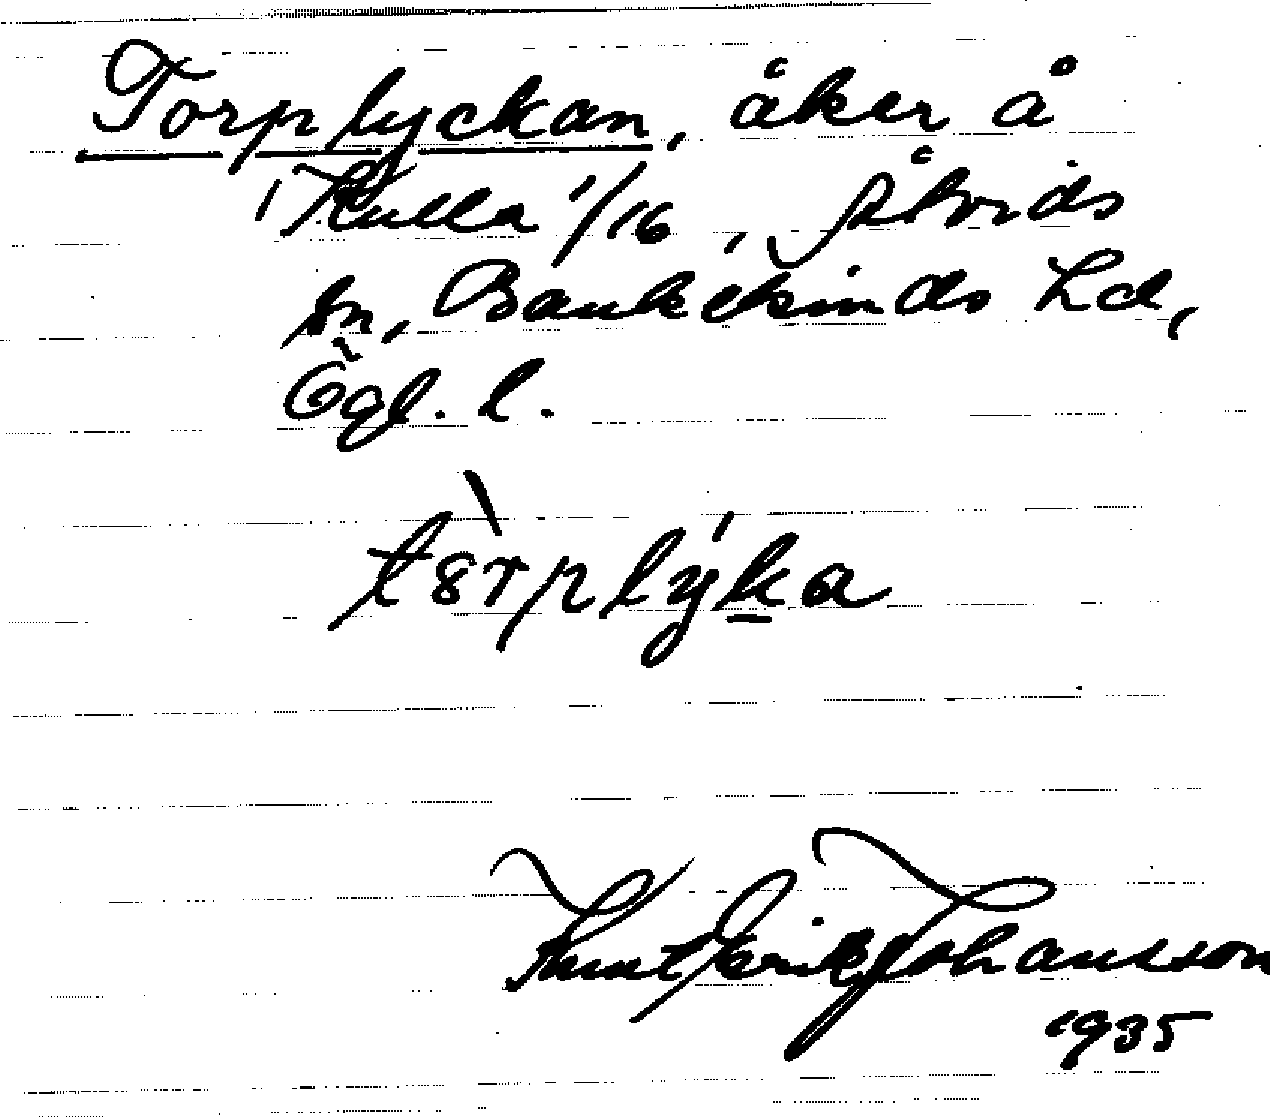 Torplyckan, åker å
Kulla 1/16, Åtvids
sn, Bankekinds hd,
Ögl. l.
tòrplýka
Knut Erik Johansson
1935